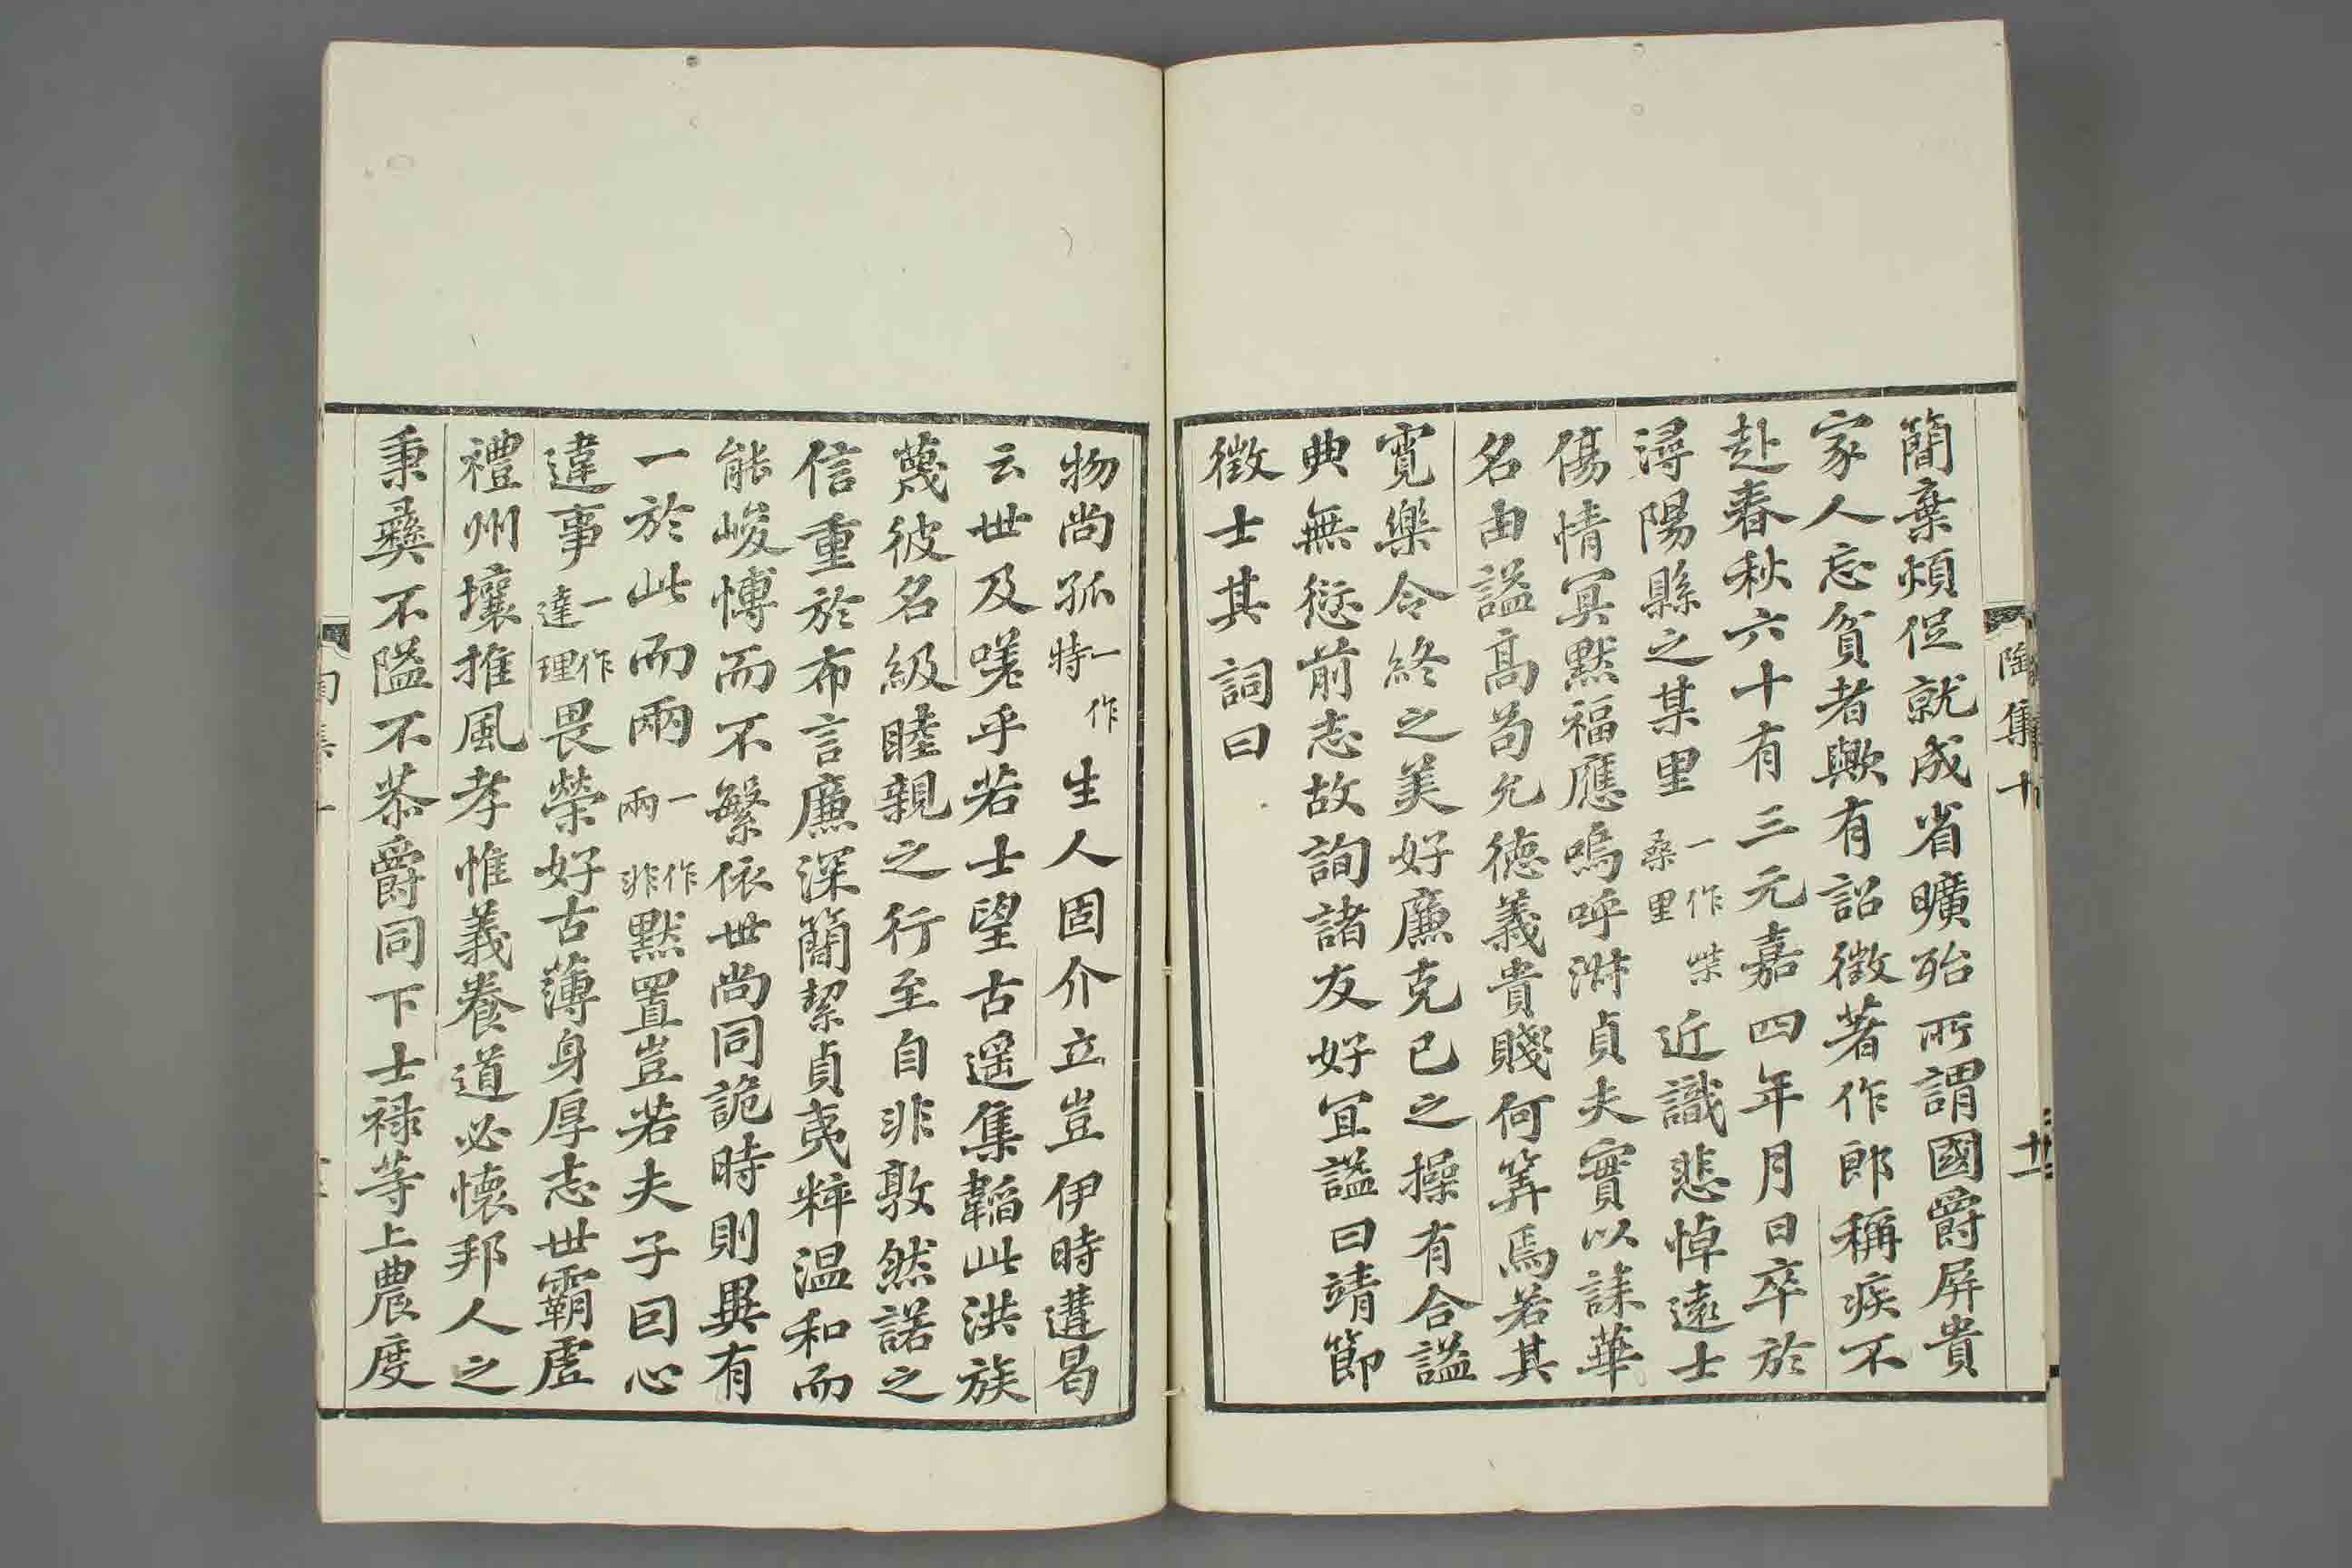 簡棄煩促就成省曠殆所謂國爵屏貴
家人忘貧者歟有詔徵著作郎稱疾不
赴春秋六十有三元嘉四年月日卒於
潯陽縣之某里一作柴桑里近識悲悼遠士
傷情冥黙福應嗚呼淋貞夫實以誄華
名由謚高苟允德義貴賤何筭焉若其
寬樂令終之美好廉克已之操有合謚
典無愆前志故詢諸友好宜謚曰靖節
徵士其詞曰
物尚孤一作特生人固介立豈伊時遘曷
云世及嗟乎若士望古遥集韜此洪族
蔑彼名級睦親之行至自非敦然諾之
信重於布言廉深簡絜貞夷粹温和而
能峻愽而不繁依世尚同詭時則異有
一於此而兩一作兩非黙置豈若夫子因心
違事一作達理畏榮好古薄身厚志世霸虗
禮州壤推風孝惟義養道必懷邦人之
秉彝不隘不恭爵同下士禄等上農度
陶集十
十一